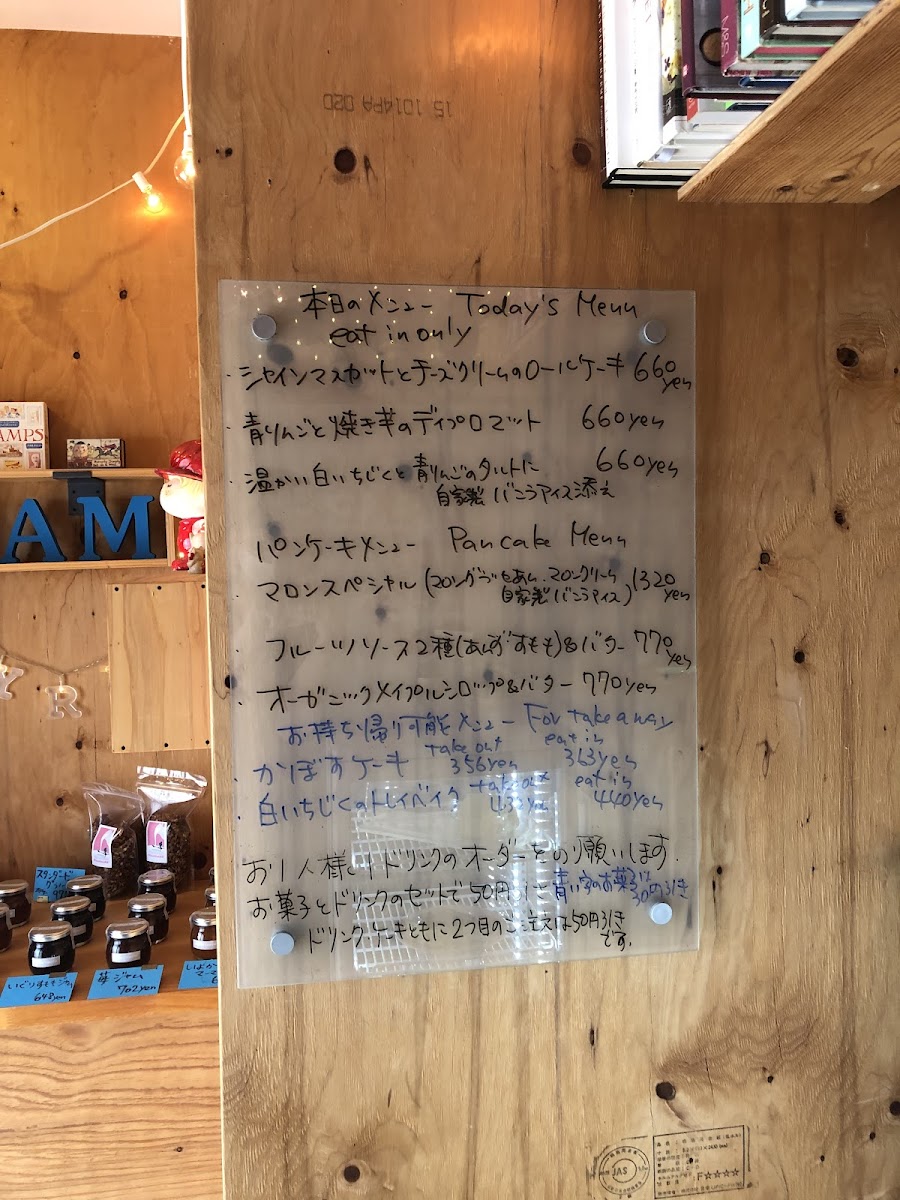 15 1014PA 020
本日のメニュー Today's Menu
eat in only
・シャインマスカットとチーズクリームのロールケーキ 660yen
青りんごと焼き芋のディプロマット 660yen
・温かい白いちじくと青りんごのタルトに 660yen
自家製バニラアイス添え
パンケーキメニュー Pancake Menu
・マロンスペシャル (マロングラッセあん、マロンクリーム 1320yen
自家製バニラアイス)
・フルーツソース2種(あんず すもも)&バター 770yen
・オーガニックメイプルシロップ&バター 770yen
お持ち帰り可能メニュー For take away
・かぼすケーキ take out 356yen eat in 363yen
・白いちじくのトレイベイク take out 432yen eat in 440yen
お1人様1ドリンクのオーダーをお願いします.
お菓子とドリンクのセットで50円引き 青い字のお菓子は30円引き
ドリンクケーキともに2つ目のご注文は50円引きです.
AMPS
AM
Y R
スタンダード
いぐりすももジャム
648yen
苺ジャム
702yen
いよか
マーマ
JAS
F☆☆☆☆